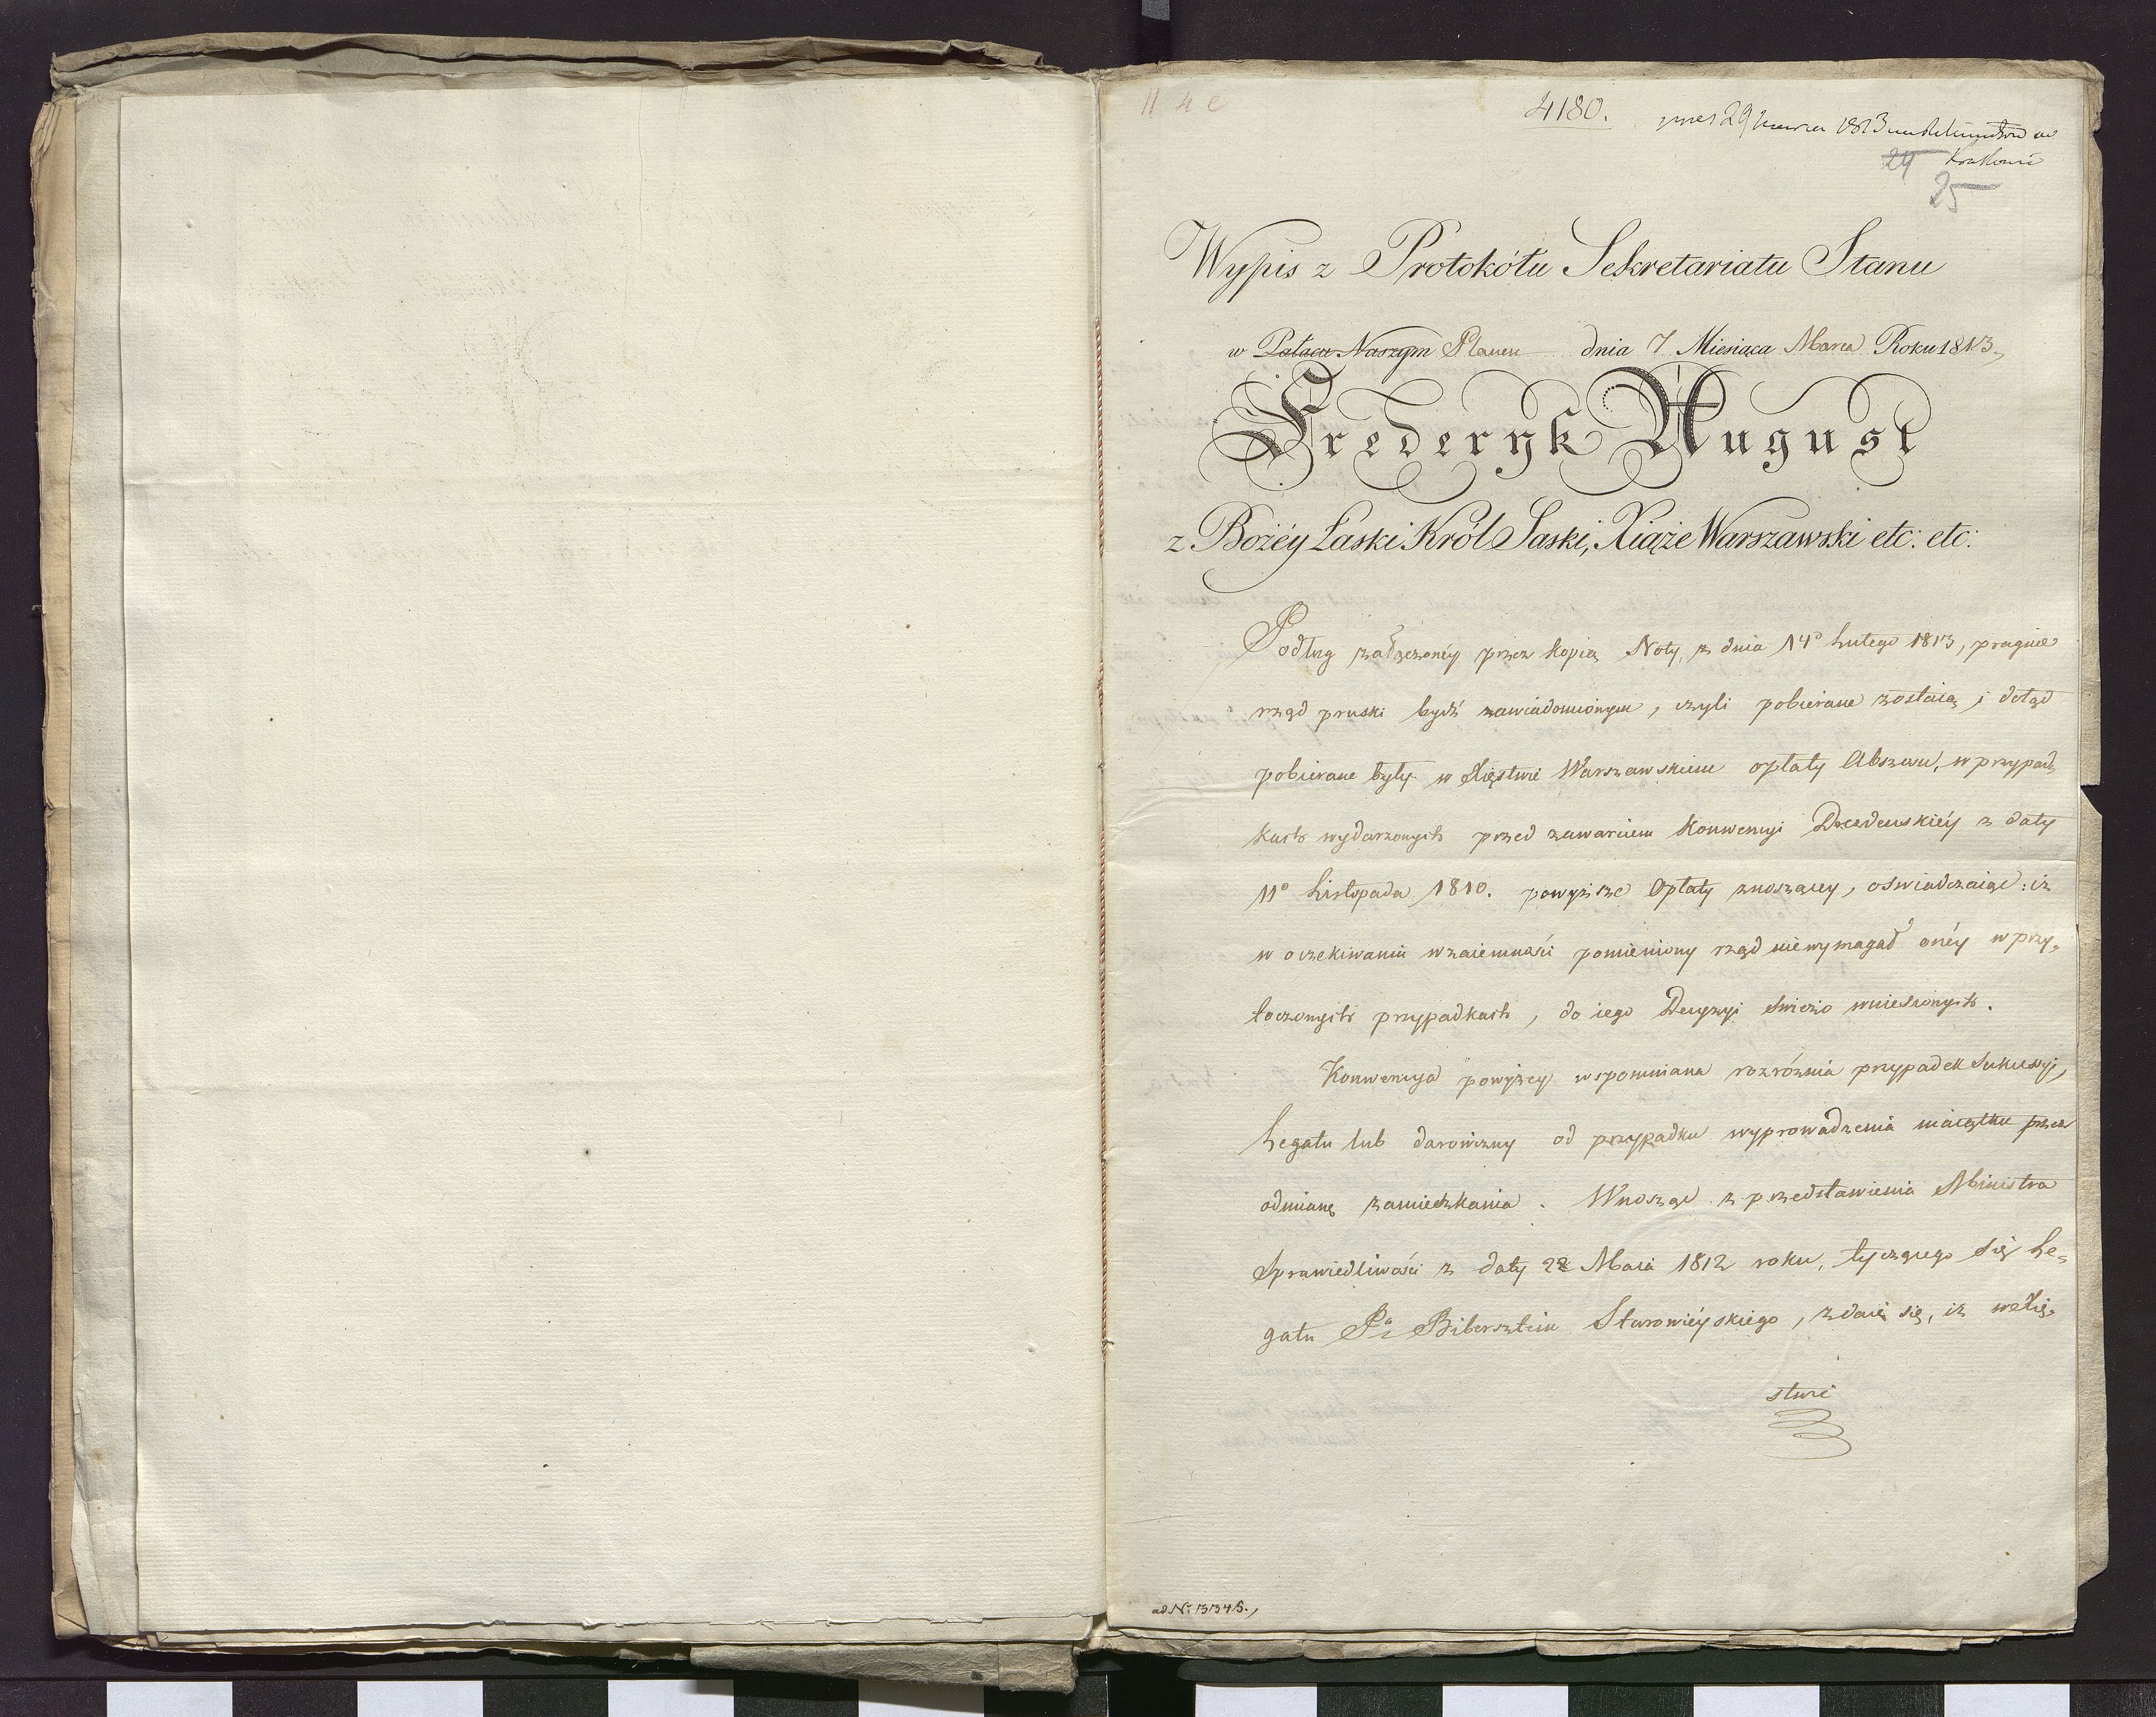 11 4 e
4180.
29 1813 w
24 Krakowie
25
Wypis z Protokółu Sekretariatu Stanu
w Pałacu Naszym Plauen dnia 7 Miesiąca Marca Roku 1813,
Frederyk August
z Bożéy Łaski Król Saski, Xiąże Warszawski etc: etc:
Podług załączonéy przez kopią Noty, z dnia 14° Lutego 1813, pragnie
rząd pruski bydź zawiadomionym, czyli pobierane zostaią, i dotąd
pobierane były w Xięstwie Warszawskiem opłaty Abszosu, w przypad-
kach wydarzonych przed zawarciem Konwencyi Drezdeńskiéy z daty
11° Listopada 1810. powyższe Opłaty znoszącey, oświadczaiąc: iż
w oczekiwaniu wzaiemności pomieniony rząd niewymagał onéy w przy-
toczonych przypadkach, do iego Decyzyi świeżo wniesionych.
Konwencya powyżey wspomniana rozróżnia przypadek Sukcessyi,
Legatu lub darowizny od przypadku wyprowadzenia maiątku przez
odmianę zamieszkania. Wnosząc z przedstawienia Ministra
Sprawiedliwości z daty 22 Maia 1812 roku, tyczącego się Le-
gatu Pa Bibersztein Starowieyskiego, zdaie się, iż w Xię-
stwie
ad Nr. 3345.,